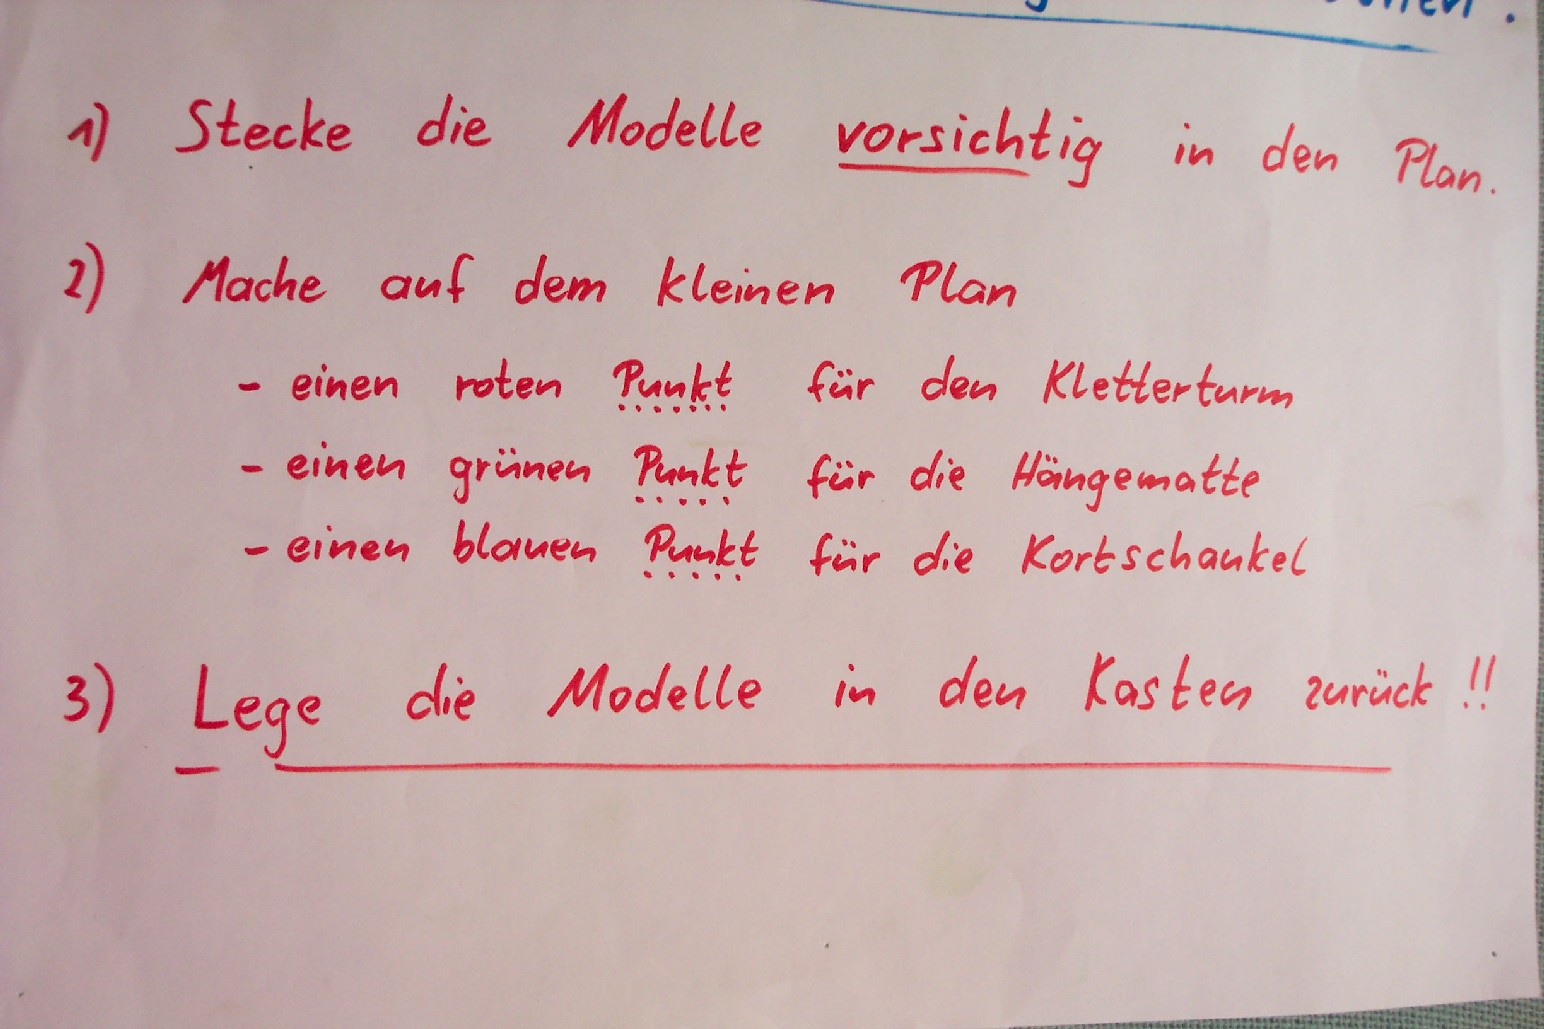 1) Stecke die Modelle vorsichtig in den Plan.
2) Mache auf dem kleinen Plan
- einen roten Punkt für den Kletterturm
- einen grünen Punkt für die Hängematte
- einen blauen Punkt für die Kortschaukel
3) Lege die Modelle in den Kasten zurück!!